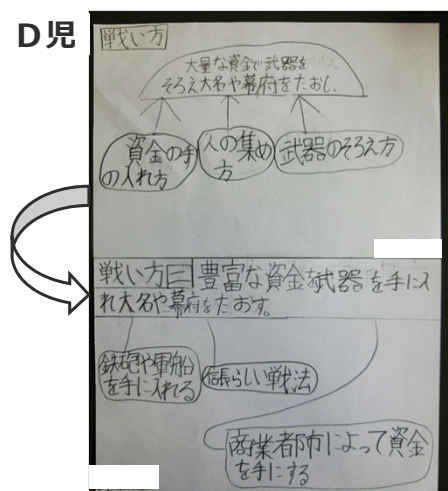 D児
戦い方
大量な資金で武器を
そろえ大名や幕府をたおし、
資金の手
の入れ方
人の集め
方
武器のそろえ方
戦い方 豊富な資金を武器を手に入
れ大名や幕府をたおす。
鉄砲や軍船
を手に入れる
信長らしい戦法
商業都市によって資金
を手にする